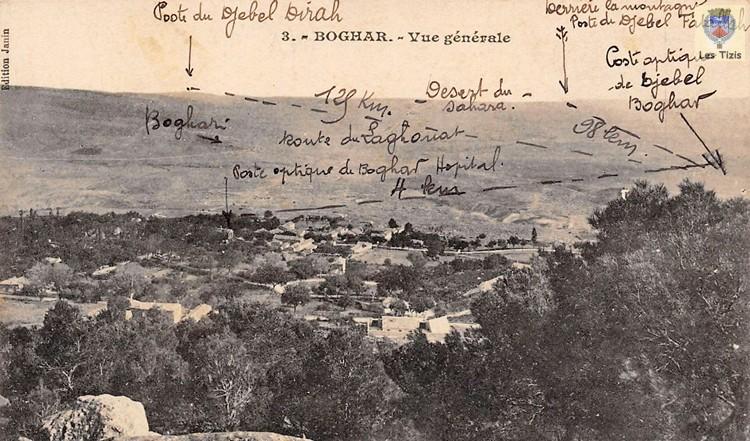 Poste du Djebel Dirah
Derrière la montagne
Poste du Djebel
Les Tizis
3. - BOGHAR. - Vue générale
Edition Janin
Poste optique
de Djebel
Boghar
125 Km.
Desert du
Sahara.
Boghari
Route du Laghouat
98 km.
Poste optique de Boghar Hopital.
4 km